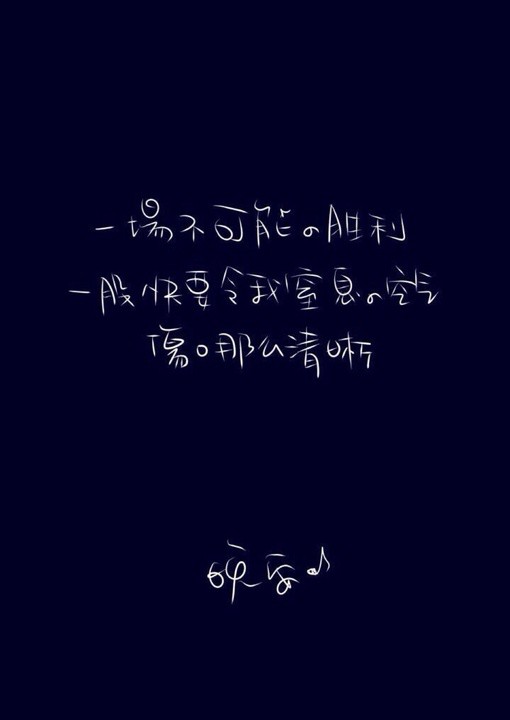 一場不可能の胜利
一股快要令我窒息の空气
傷口那么清晰
晚安♪